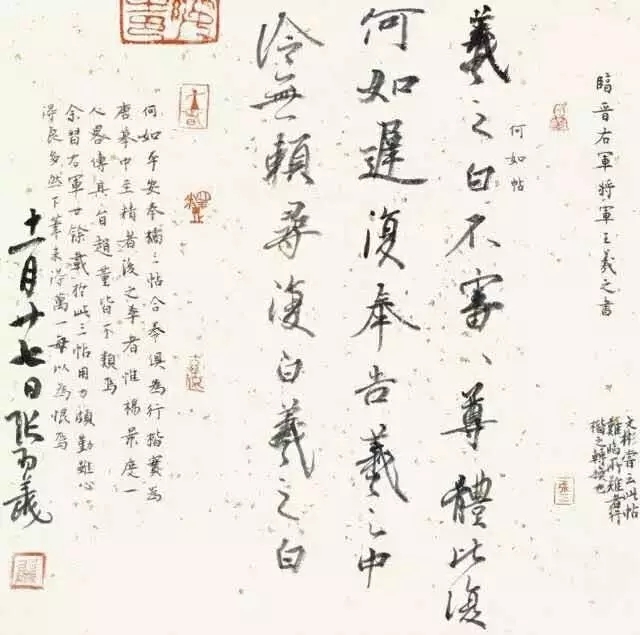 臨晋右軍将軍王羲之書
文彬嘗云此帖
難臨所難者行
楷之轉換也
何如帖
羲之白不審、尊體比復
何如遲復奉告羲之中
冷無賴尋復白羲之白
何如平安奉橘三帖合俱為行楷實為
唐摹中至精者後之者惟楊景度一
人畧傳其旨趙董皆不類焉
余習右軍廿餘載於此三帖用力頗勤雖心
得良多然下筆未得萬一每以為恨焉
十一月廿七日張義